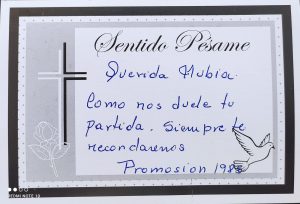 Sentido Pésame
Querida Nubia.
Como nos duele tu
partida. Siempre te
recordaremos
Promosion 1985
REDMI NOTE 10